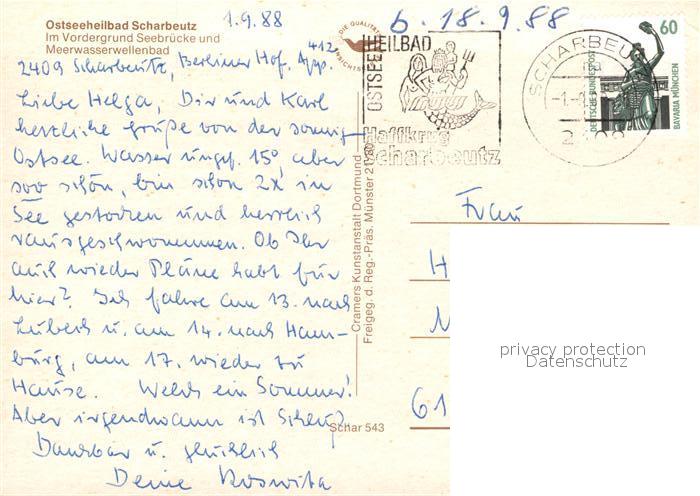 Ostseeheilbad Scharbeutz
Im Vordergrund Seebrücke und
Meerwasserwellenbad
1.9.88
b. 18.9.88
2409 Scharbeutz, Berliner Hof, App. 412
Liebe Helga, Dir und Karl
herzliche Grüße von der sonnig-
Ostsee. Wasser ungf. 15°, aber
soo schön, bin schon 2x in
See gestochen und herrlich
rausgeschwommen. Ob Ihr
auch wieder Pläne habt für
hier? Ich fahre am 13. nach
Lübeck u. am 14. nach Ham-
burg, am 17. wieder zu
Hause. Welch ein Sommer!
Aber irgendwann ist Schluß
Dankbar u. glücklich
Deine Roswita
DIE QUALITÄTS
OSTSEEHEILBAD
Haffkrug
Scharbeutz
SCHARBEUTZ
60
DEUTSCHE BUNDESPOST
BAVARIA MÜNCHEN
Cramers Kunstanstalt Dortmund
Freigeg. d. Reg.-Präs. Münster
Schar 543
Frau
H
N
61
privacy protection
Datenschutz